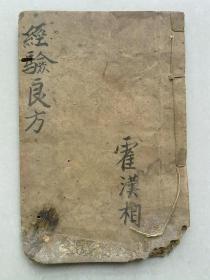 經驗良方
霍漢相